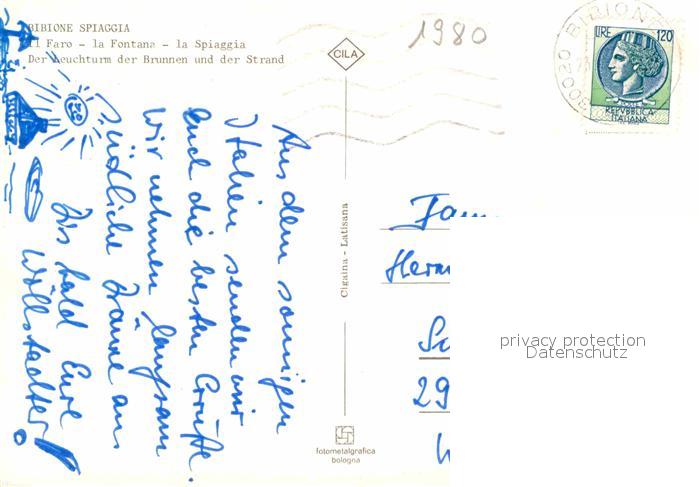 BIBIONE SPIAGGIA
Il Faro - la Fontana - la Spiaggia
Der Leuchturm der Brunnen und der Strand
1980
CILA
30020 BIBIONE
LIRE 120
REPVBBLICA
ITALIANA
Aus dem sonnigen
Italien senden wir
Euch die besten Grüße.
Wir nehmen langsam
südliche Bräune an
Bis bald Eure
Wöllstadter!
Cigaina - Latisana
fotometalgrafica
bologna
Fam
Herm
29
privacy protection
Datenschutz